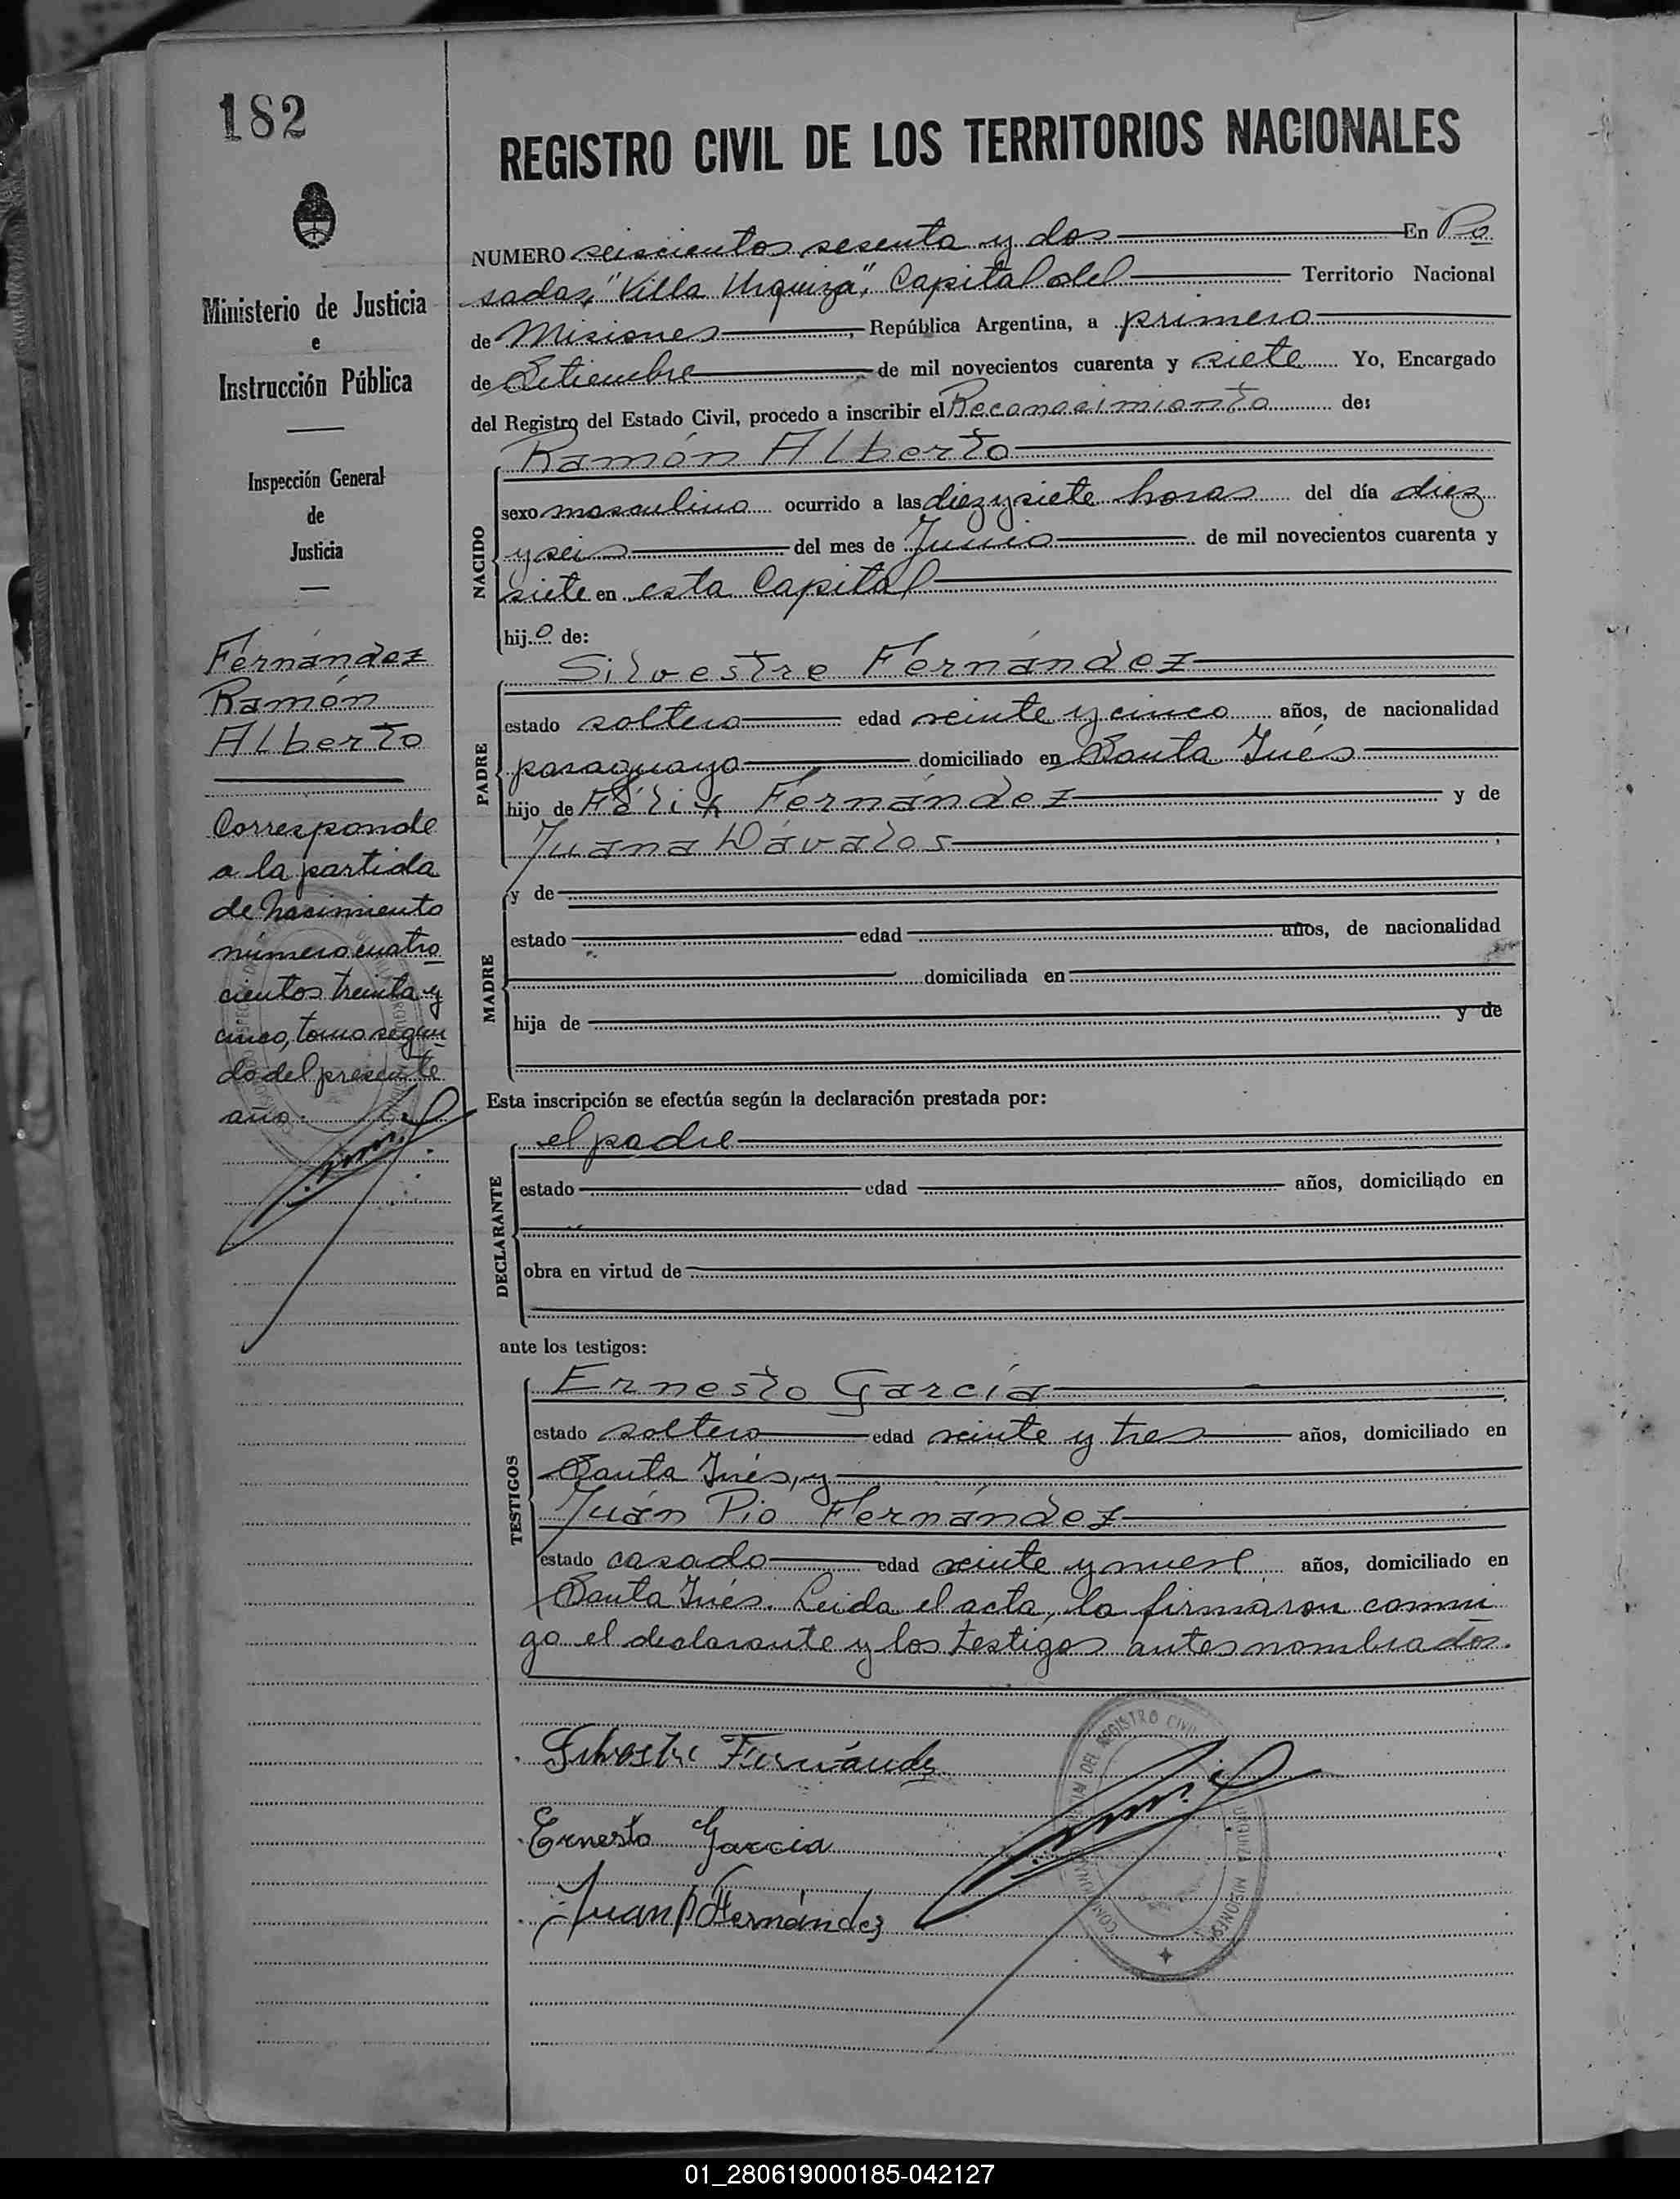 182
REGISTRO CIVIL DE LOS TERRITORIOS NACIONALES
Ministerio de Justicia
e
Instrucción Pública
Inspección General
de
Justicia
Fernández
Ramón
Alberto
Corresponde
a la partida
de nacimiento
número cuatro
cientos treinta y
cinco, tomo segun
do del presente
año.
NUMERO seiscientos sesenta y dos En Po
sadas, "Villa Urquiza", Capital del Territorio Nacional
de Misiones, República Argentina, a primero
de Setiembre de mil novecientos cuarenta y siete Yo, Encargado
del Registro del Estado Civil, procedo a inscribir el Reconocimiento de:
NACIDO
Ramón Alberto
sexo masculino ocurrido a las diez y siete horas del día diez
y seis del mes de Junio de mil novecientos cuarenta y
siete en esta Capital
hijo de:
PADRE
Silvestre Fernández
estado soltero edad veinte y cinco años, de nacionalidad
paraguaya domiciliado en Santa Inés
hijo de Félix Fernández y de
Juana Dávalos
MADRE
y de
estado edad años, de nacionalidad
domiciliada en
hija de y de
Esta inscripción se efectúa según la declaración prestada por:
DECLARANTE
el padre
estado edad años, domiciliado en
obra en virtud de
ante los testigos:
TESTIGOS
Ernesto García
estado soltero edad veinte y tres años, domiciliado en
Santa Inés, y
Juán Pio Fernández
estado casado edad veinte y nueve años, domiciliado en
Santa Inés. Leida el acta, la firmaron conmi
go el declarante y los testigos antes nombrados.
Silvestre Fernández
Ernesto Garcia
Juan P Fernández
DEL REGISTRO CIVIL
URQUIZA MISIONES
01_280619000185-042127